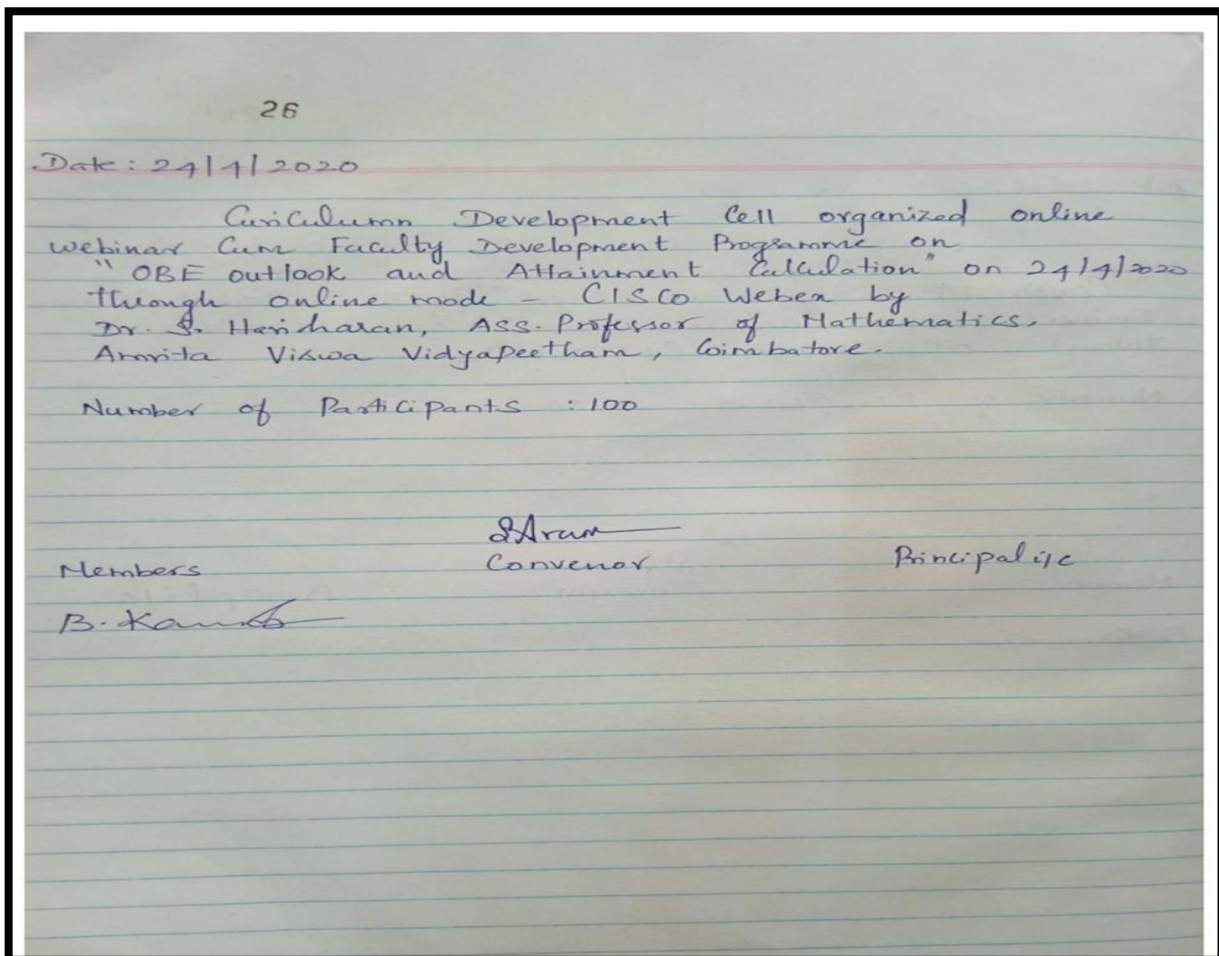 26
Date: 24/4/2020
Curiculumn Development Cell organized online
webinar Cum Faculty Development Programme on
"OBE outlook and Attainment Calculation" on 24/4/2020
through online mode - CISCO Webex by
Dr. S. Hariharan, Ass. Professor of Mathematics,
Amrita Viswa Vidyapeetham, Coimbatore.
Number of Participants : 100
Members Convenor Principal i/c
B.